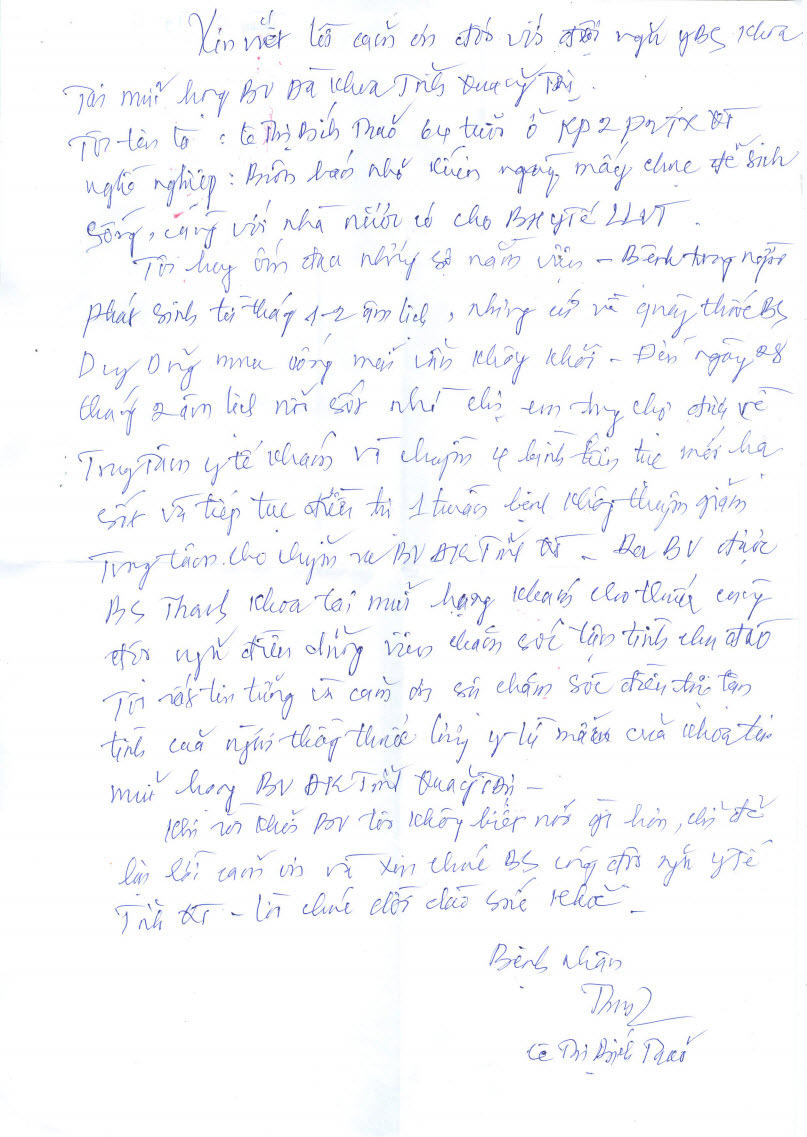 Xin viết lời cảm ơn đối với đội ngũ y BS khoa
Tai mũi họng BV Đa Khoa Tỉnh Quảng Trị.
Tôi tên là : Lê Thị Bích Thảo 64 tuổi ở KP2 P2 TX QT
nghề nghiệp : Buôn bán nhỏ kiếm ngày mấy chục để sinh
sống, cùng với nhà nước có cho BH y tế
Tôi hay ốm đau nhưng sợ nằm viện - Bệnh trong người
phát sinh từ tháng 1-2 âm lịch, nhưng cứ về quầy thuốc BS
Duy Dũng mua uống mãi vẫn không khỏi - Đến ngày 28
tháng 2 âm lịch nổi sốt nhờ chị em chợ đưa về
Trung tâm y tế khám và chuyền 4 bình liên tục mới hạ
sốt và tiếp tục điều trị 1 tuần bệnh không thuyên giảm
Trung tâm cho chuyển ra BV ĐK Tỉnh QT - Ra BV được
BS Thanh Khoa tai mũi họng khám cho thuốc cùng
đội ngũ điều dưỡng viên chăm sóc tận tình chu đáo
Tôi rất tin tưởng và cảm ơn sự chăm sóc điều trị tận
tình của người thầy thuốc lương y từ mẫu của khoa tai
mũi họng BV ĐK Tỉnh Quảng Trị -
Khi rời khỏi BV tôi không biết nói gì hơn, chỉ để
lại lời cảm ơn và xin chúc BS cùng đội ngũ y tế
Tỉnh QT - lời chúc dồi dào sức khoẻ -
Bệnh nhân
Lê Thị Bích Thảo